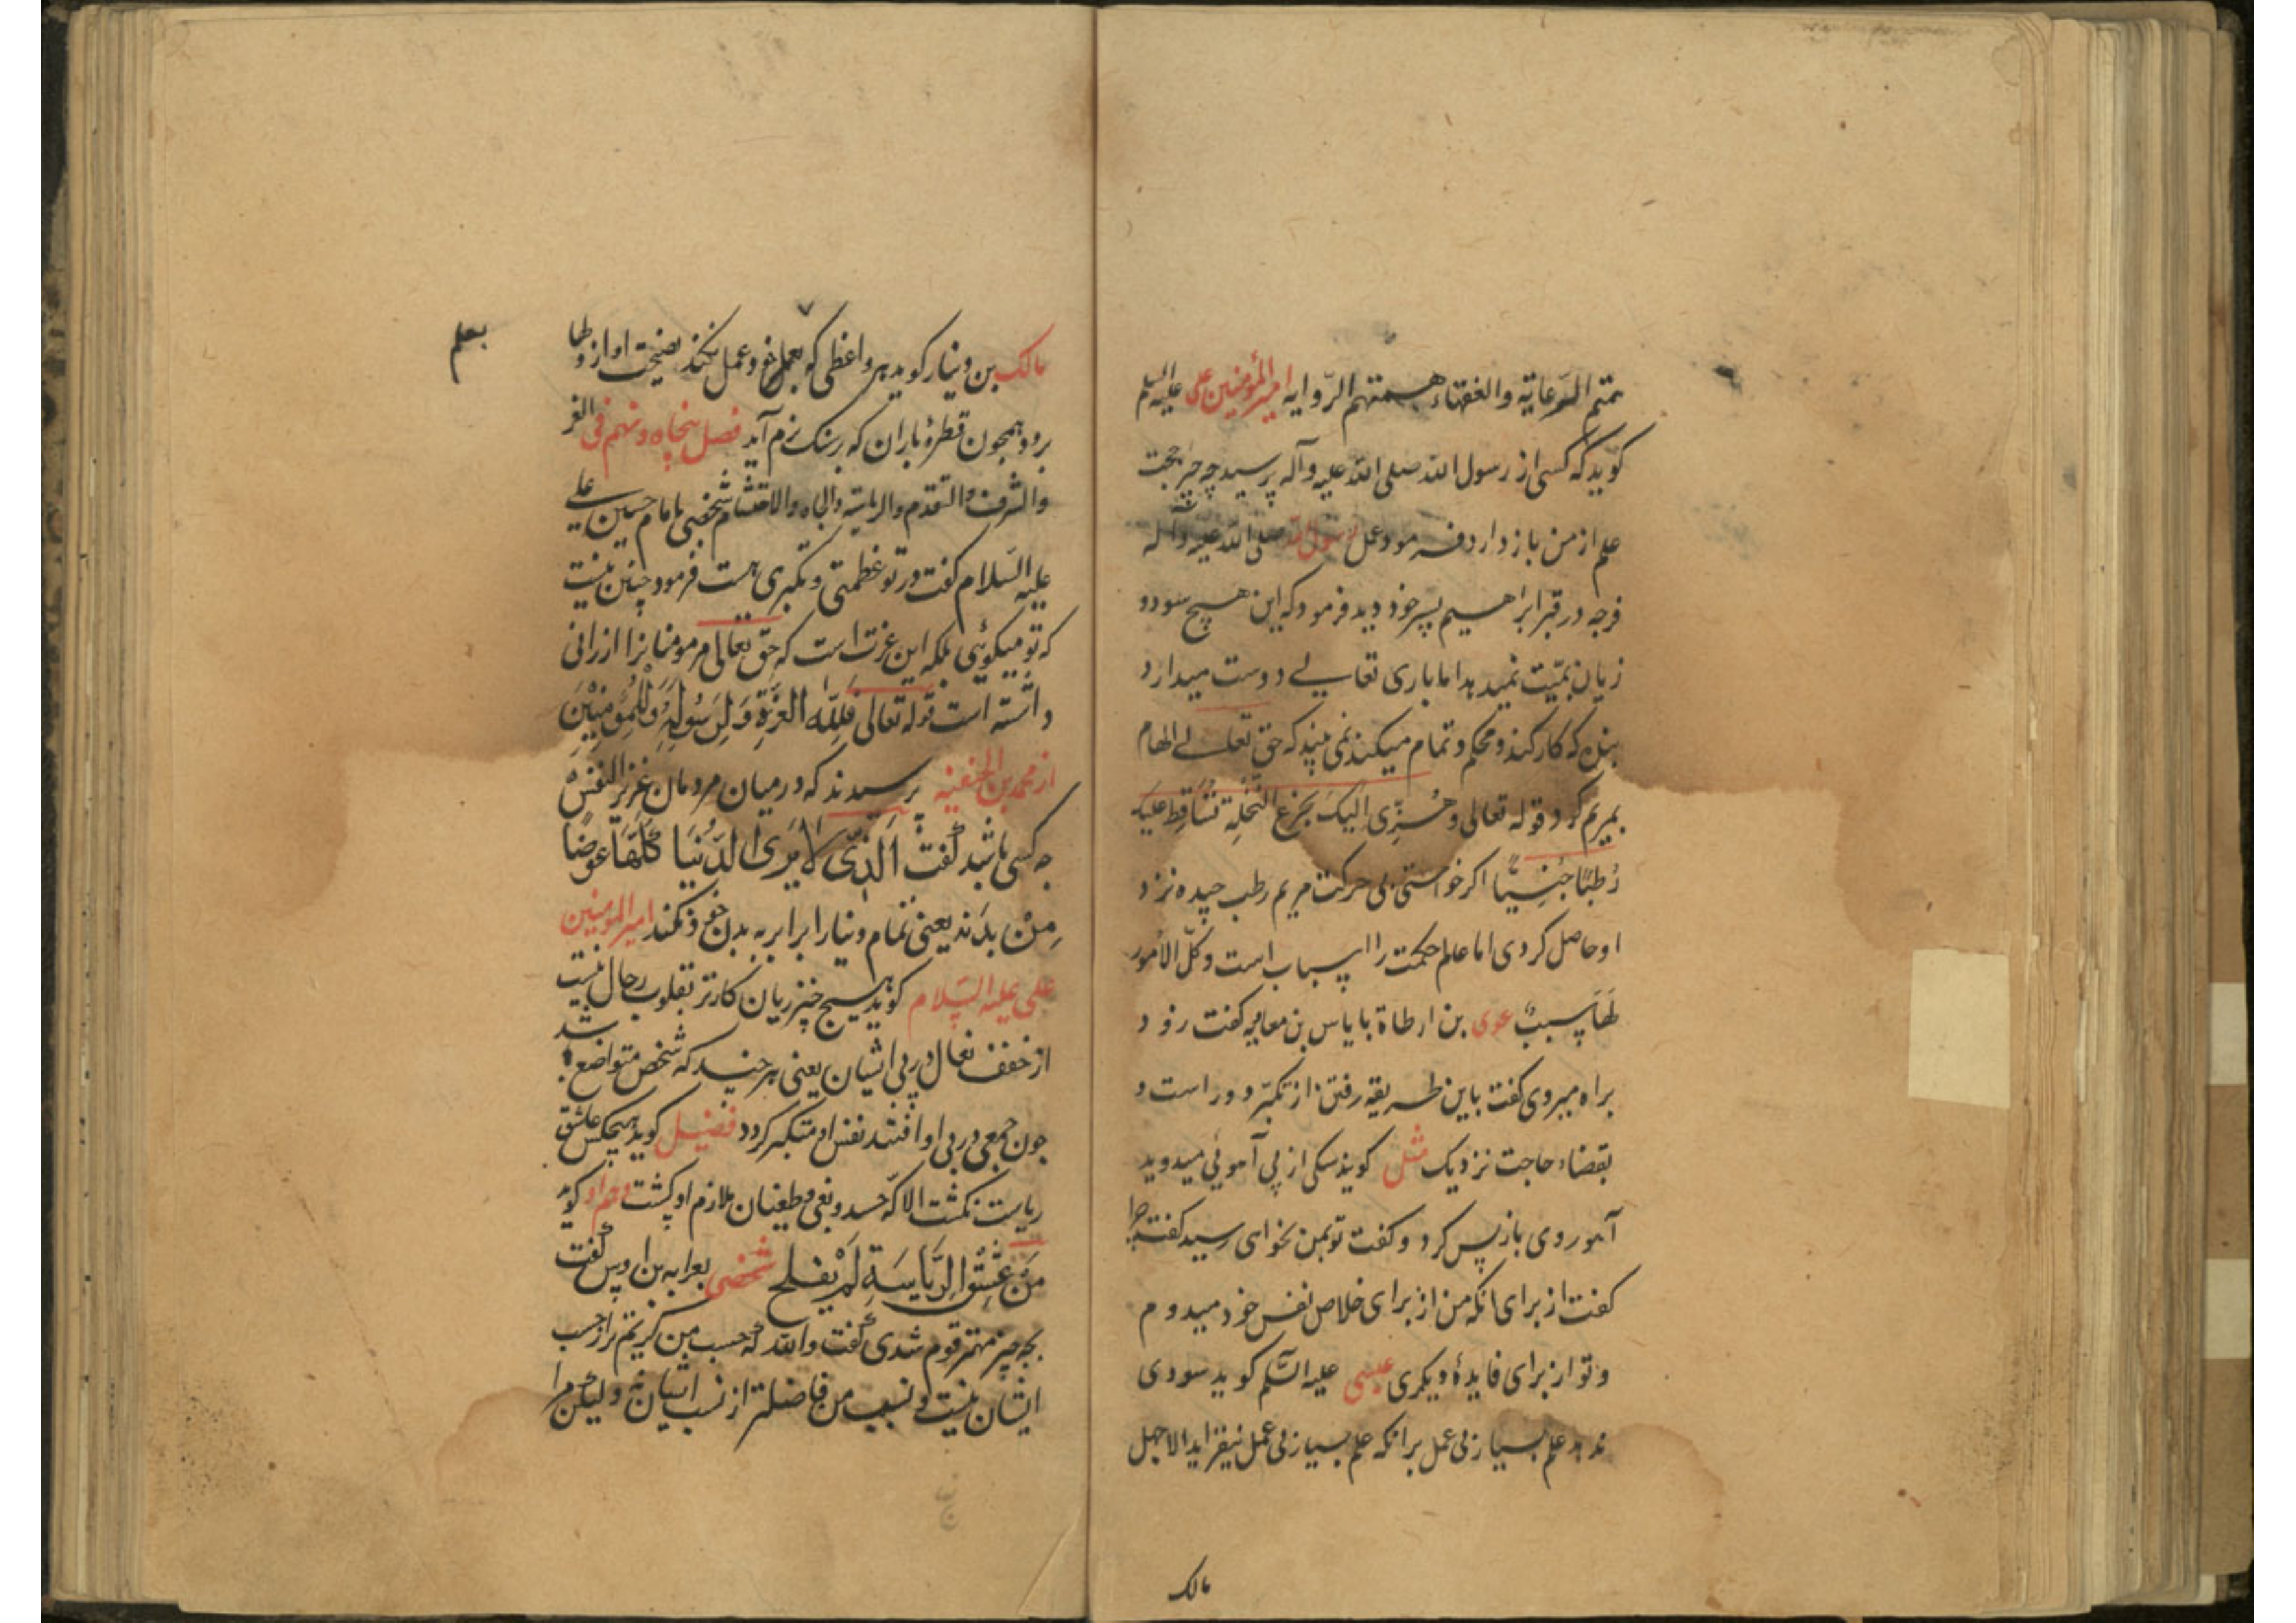 همتهم الرعایة والفقهاء همتهم الروایه امیر المؤمنین علی علیه السلم
کوید که کسی از رسول الله صلی الله علیه وآله پرسید چه چیز حجت
علم از من باز دارد فرمود عمل رسول الله صلی الله علیه وآله
فرجه در قبر ابراهیم پسر خود دید فرمود که این هیچ سود و
زیان بمیت نمیدهد اما باری تعالی دوست میدارد
بنده که کار کند و محکم و تمام میکند نمی بینید که حق تعالی الهام
بمریم کرد قوله تعالی وهُزّی اِلیکِ بجِزعِ النَّخلةِ تُساقِط علیکِ
رُطبًا جنِیًّا اکر خواستی بی حرکت مریم رطب چیده نزد
او حاصل کردی اما علم حکمت را اسباب است وکلّ الاُمور
لهَا سببٌ عدی بن ارطاة با یاس بن معاویه کفت زود
براه میروی کفت باین طریقه رفتن از تکبّر دور است و
بقضاء حاجت نزدیک مثل کویند سکی از پی آهویی میدوید
آهو روی باز پس کرد و کفت تو بمن نخوای رسید کفت چرا
کفت از برای آنکه من از برای خلاص نفس خود میدوم
و تو از برای فایدهٔ دیکری عیسی علیه السّلم کوید سودی
ندهد علم بسیار بی عمل برانکه علم بسیار بی عمل نیفزاید الا جهل
مالک
۷
مالک بن دینار کوید هر واعظی که بعمل خود عمل نکند نصیحت او از دلها
برود همچون قطرهٔ باران که بر سنک نرم آید فصل پنجاه و نهم فی العز
والشرف والتقدم والریاسة والجاه والاحتشام شخصی با امام حسین علی
علیه السلام کفت در تو عظمتی و تکبری هست فرمود چنین نیست
که تو میکوئی بلکه این عزت است که حق تعالی مر مومنانرا ارزانی
داشته است قوله تعالی فَلِلّه العِزّةِ وَلِرَسُولِهِ وَلِلْمُؤمِنِینَ
از محمد بن الحنفیه پرسیدند که در میان مردمان عزیز النفس
چه کسی باشد کفت اَلَّذی لا یَرَی الدُّنیَا کُلّهَا عوضًا
مِنْ بدَنه یعنی تمام دنیا را برابر به بدن خود نکند امیر المومنین
علی علیه السلام کوید هیچ چیز زیان کارتر بقلوب رجال نیست
از خفف نعال در پی ایشان یعنی هر چند که شخص متواضع باشد
چون جمعی در پی او افتند نفس او متکبر کردد فضیل کوید هیچکس عاشق
ریاست نکشت الا که حسد و بغی و طغیان ملازم او کشت و هم او کوید
مَنْ عَشِقَ الرِّیَاسَةِ لَمْ یفلح شخصی بعرابه بن اوس کفت
بچه چیز مهتر قوم شدی کفت والله که حسب من کریم تر از حسب
ایشان نیست و نسب من فاضلتر از نسب ایشان نه ولیکن مرا
بعلم